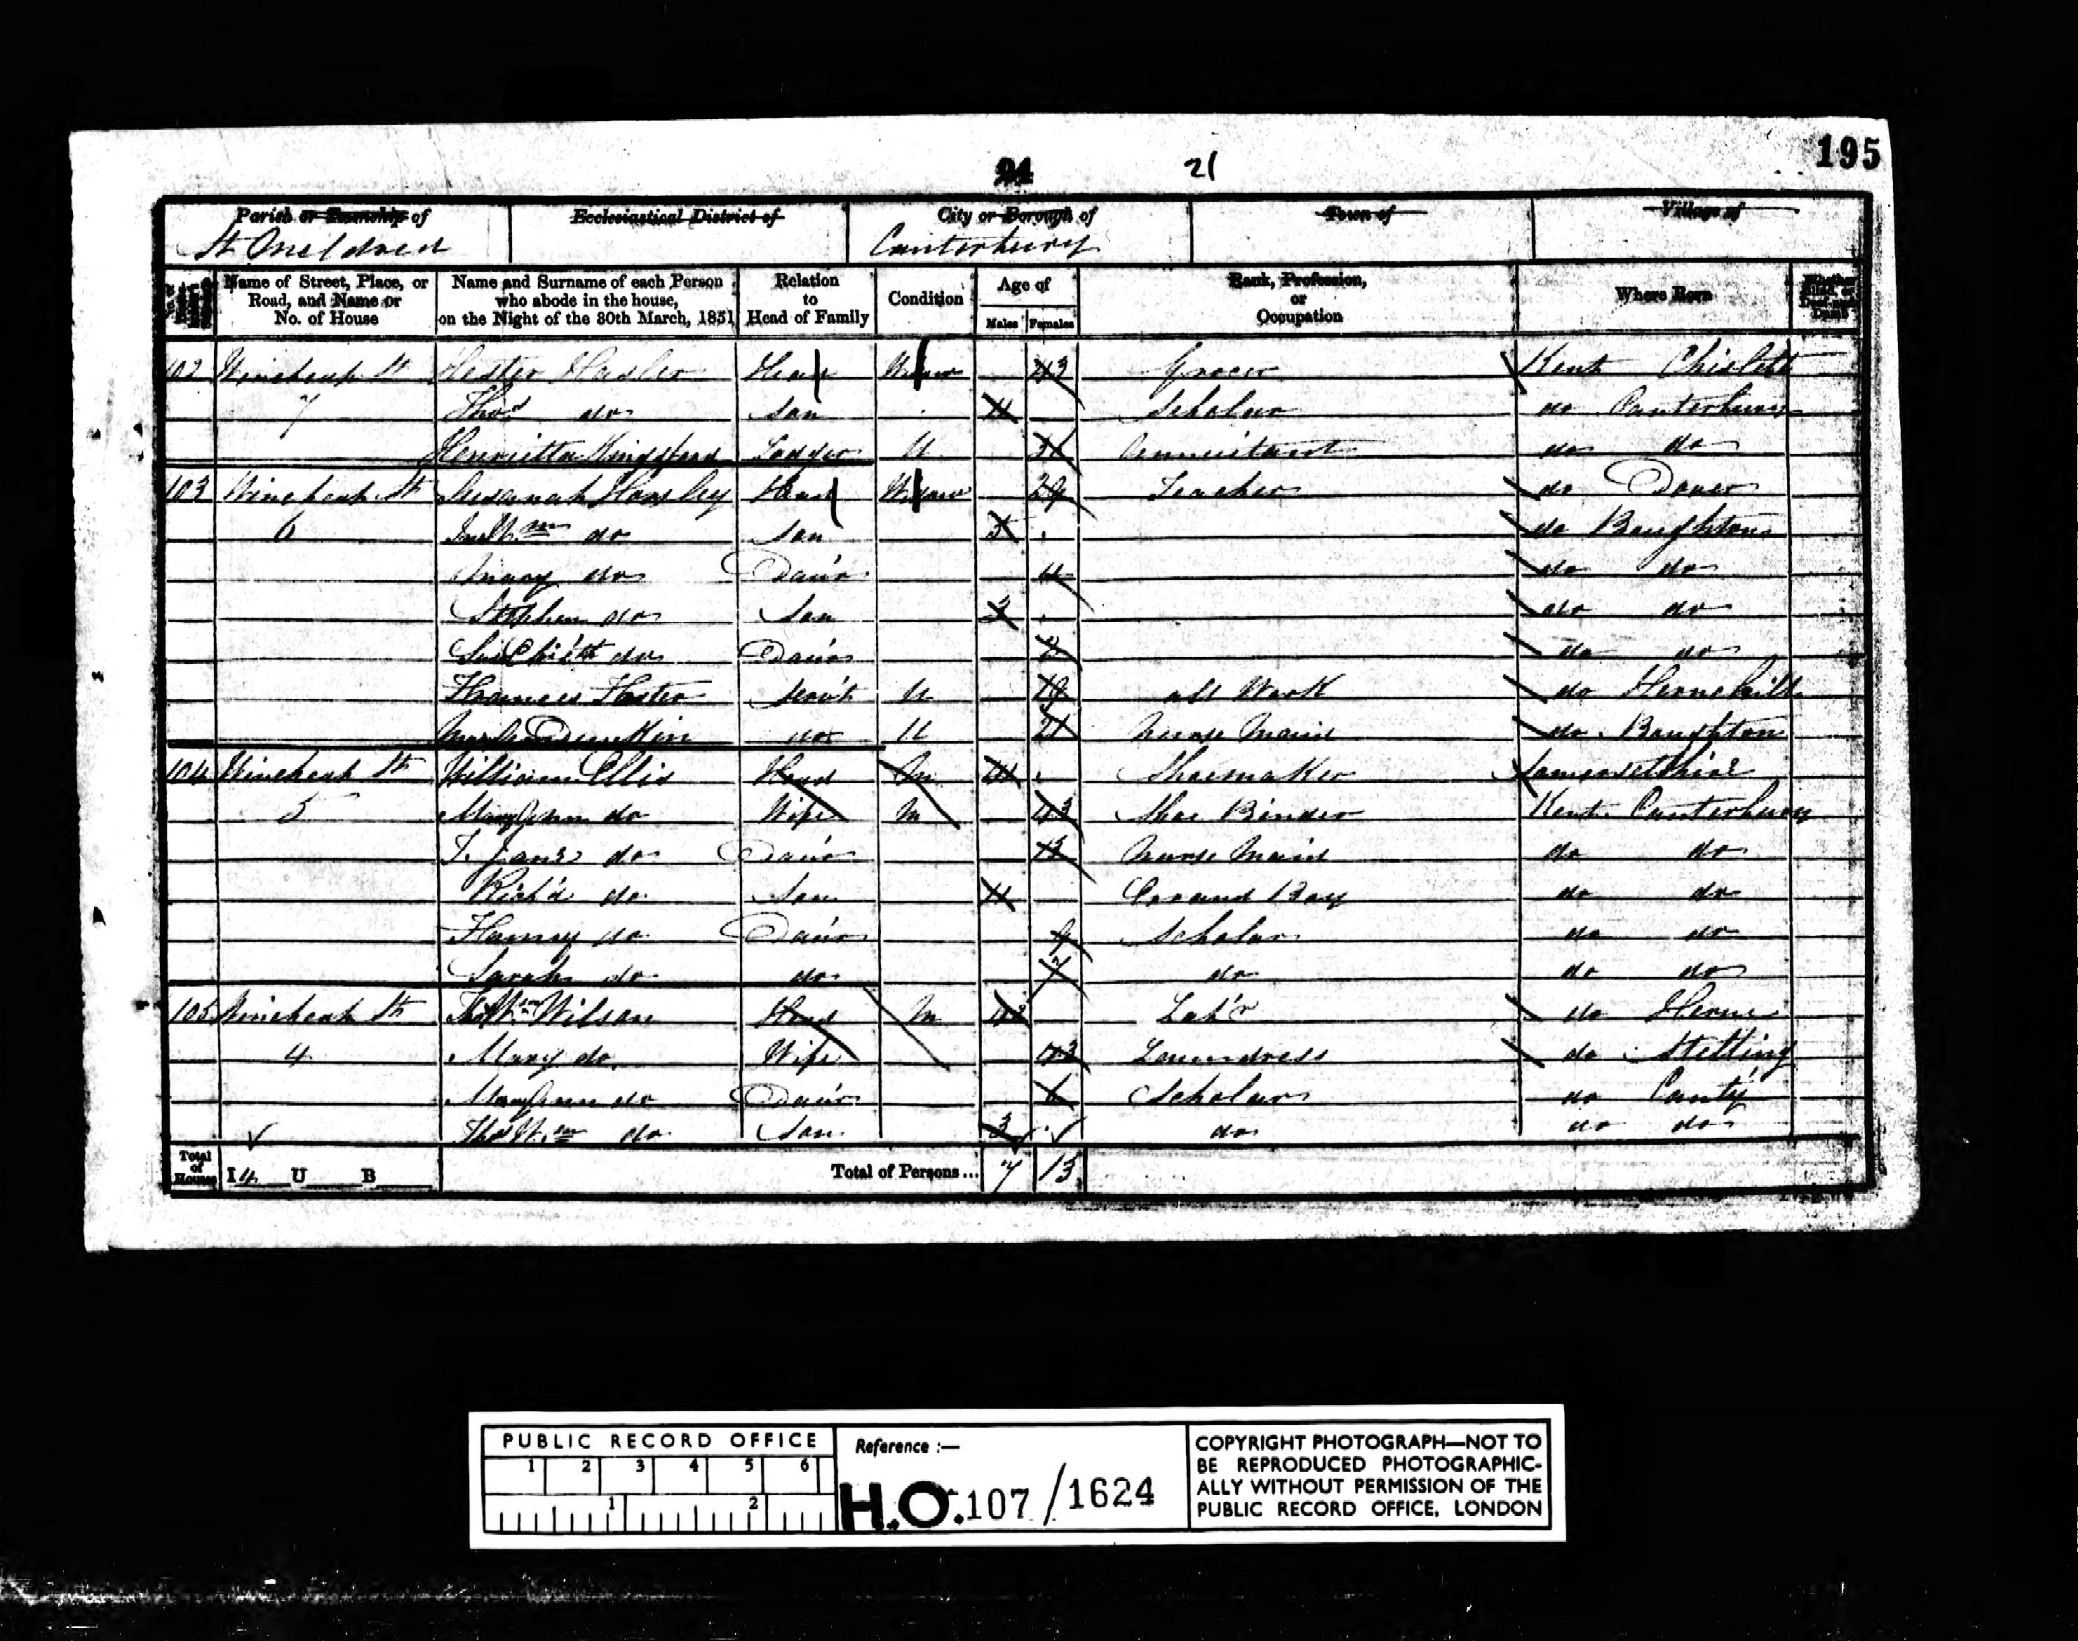 195
24 21
Parish or Township of Ecclesiastical District of City or Borough of Town of Village of
St Mildred Canterbury
Name of Street, Place, or Road, and Name or No. of House Name and Surname of each Person who abode in the house, on the Night of the 30th March, 1851 Relation to Head of Family Condition Age of Males Females Rank, Profession, or Occupation Where Born Whether Blind, or Deaf-and-Dumb
102 Wincheap St Hester Hasler Head Widow 43 Grocer Kent Chislett
7 Thos do Son 11 Scholar do Canterbury
Henrietta Kingsford Lodger U Annuitant do do
103 Wincheap St Susanah Head Widow 29 Teacher do Dover
6 Wm do Son 5 do Boughton
do Daur 4 do do
Stephen do Son 3 do do
do Daur 2 do do
Frances Servt U 19 all Work do Hernehill
do U 21 Nurse Maid do Boughton
104 Wincheap St William Ellis Head M Shoemaker Somersetshire
5 Mary Ann do Wife M 43 Shoe Binder Kent Canterbury
T. Jane do Daur 13 Nurse Maid do do
Rich'd do Son 11 Errand Boy do do
Fanny do Daur 9 Scholar do do
Sarah do do 7 do do do
105 Wincheap St Wm Wilson Head M Lab'r do Herne
4 Mary do Wife 43 Laundress do Stelling
Mary Ann do Daur 6 Scholar do Canty
Thos Wm do Son 3 do do do
Total of Houses I 4 U B Total of Persons... 7 13
PUBLIC RECORD OFFICE
1 2 3 4 5 6
1 2
Reference :—
H.O. 107 / 1624
COPYRIGHT PHOTOGRAPH—NOT TO
BE REPRODUCED PHOTOGRAPHIC-
ALLY WITHOUT PERMISSION OF THE
PUBLIC RECORD OFFICE, LONDON